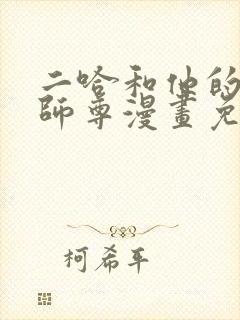 二哈和他的
師尊漫畫免
柯希平